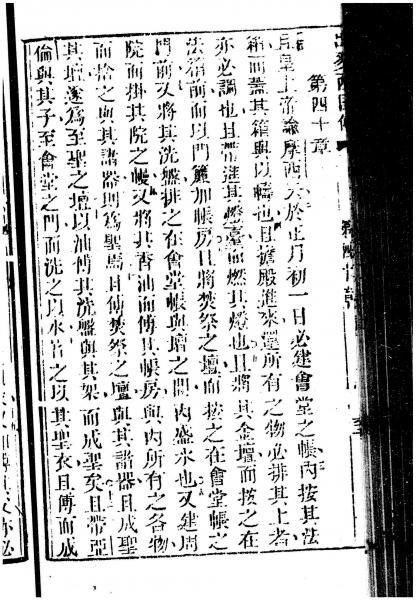 第四十章
且皇上帝諭摩西云於正月初一日必建會堂之帳內按其法
箱而蓋其箱與以幔也且擔殿進來還所有之物必排其上者
亦必調也且帶進其燈臺而燃其燈也且將其金壇而按之在
法箱前而以門簾加帳房且將焚祭之壇而按之在會堂帳之
門前又將其洗盤排之在會堂帳與壇之間內盛水也又建周
院而掛其院之幔又將其膏油而傅其帳房與內所有之各物
而拾之與其諸器則爲聖焉且傅焚祭之壇與其諸器且成聖
其壇遂爲至聖之壇以油傅其洗盤與其架而成聖矣且帶亞
倫與其子至會堂之門而洗之以水首之以其聖衣且傅而成